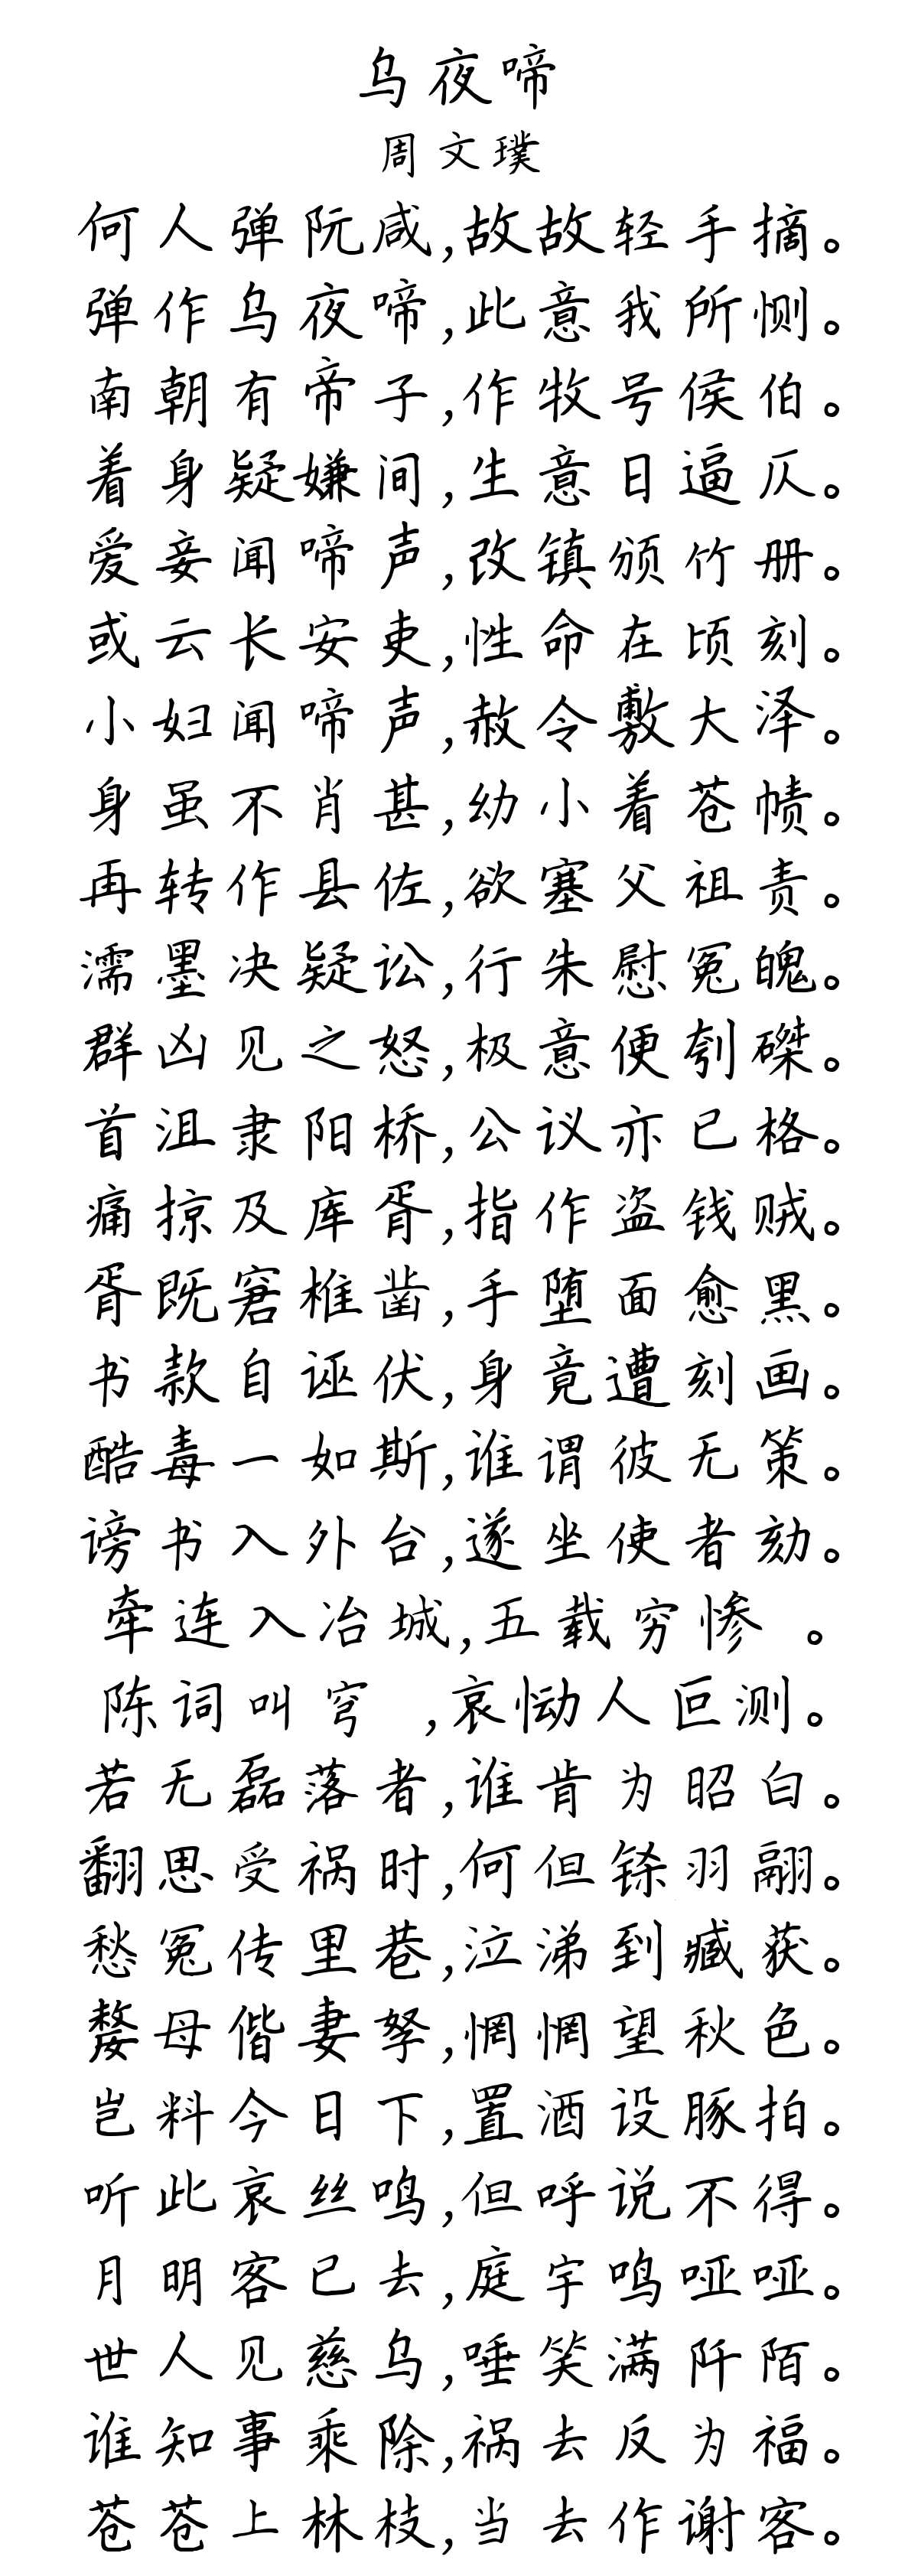 乌夜啼
周文璞
何人弹阮咸,故故轻手摘。
弹作乌夜啼,此意我所恻。
南朝有帝子,作牧号侯伯。
着身疑嫌间,生意日逼仄。
爱妾闻啼声,改镇颁竹册。
或云长安吏,性命在顷刻。
小妇闻啼声,赦令敷大泽。
身虽不肖甚,幼小着苍帻。
再转作县佐,欲塞父祖责。
濡墨决疑讼,行朱慰冤魄。
群凶见之怒,极意便刳磔。
首沮隶阳桥,公议亦已格。
痛掠及库胥,指作盗钱贼。
胥既窘椎凿,手堕面愈黑。
书款自诬伏,身竟遭刻画。
酷毒一如斯,谁谓彼无策。
谤书入外台,遂坐使者劾。
牵连入冶城,五载穷惨 。
陈词叫穹 ,哀恸人叵测。
若无磊落者,谁肯为昭白。
翻思受祸时,何但铩羽翮。
愁冤传里巷,泣涕到臧获。
嫠母偕妻孥,惘惘望秋色。
岂料今日下,置酒设豚拍。
听此哀丝鸣,但呼说不得。
月明客已去,庭宇鸣哑哑。
世人见慈乌,唾笑满阡陌。
谁知事乘除,祸去反为福。
苍苍上林枝,当去作谢客。